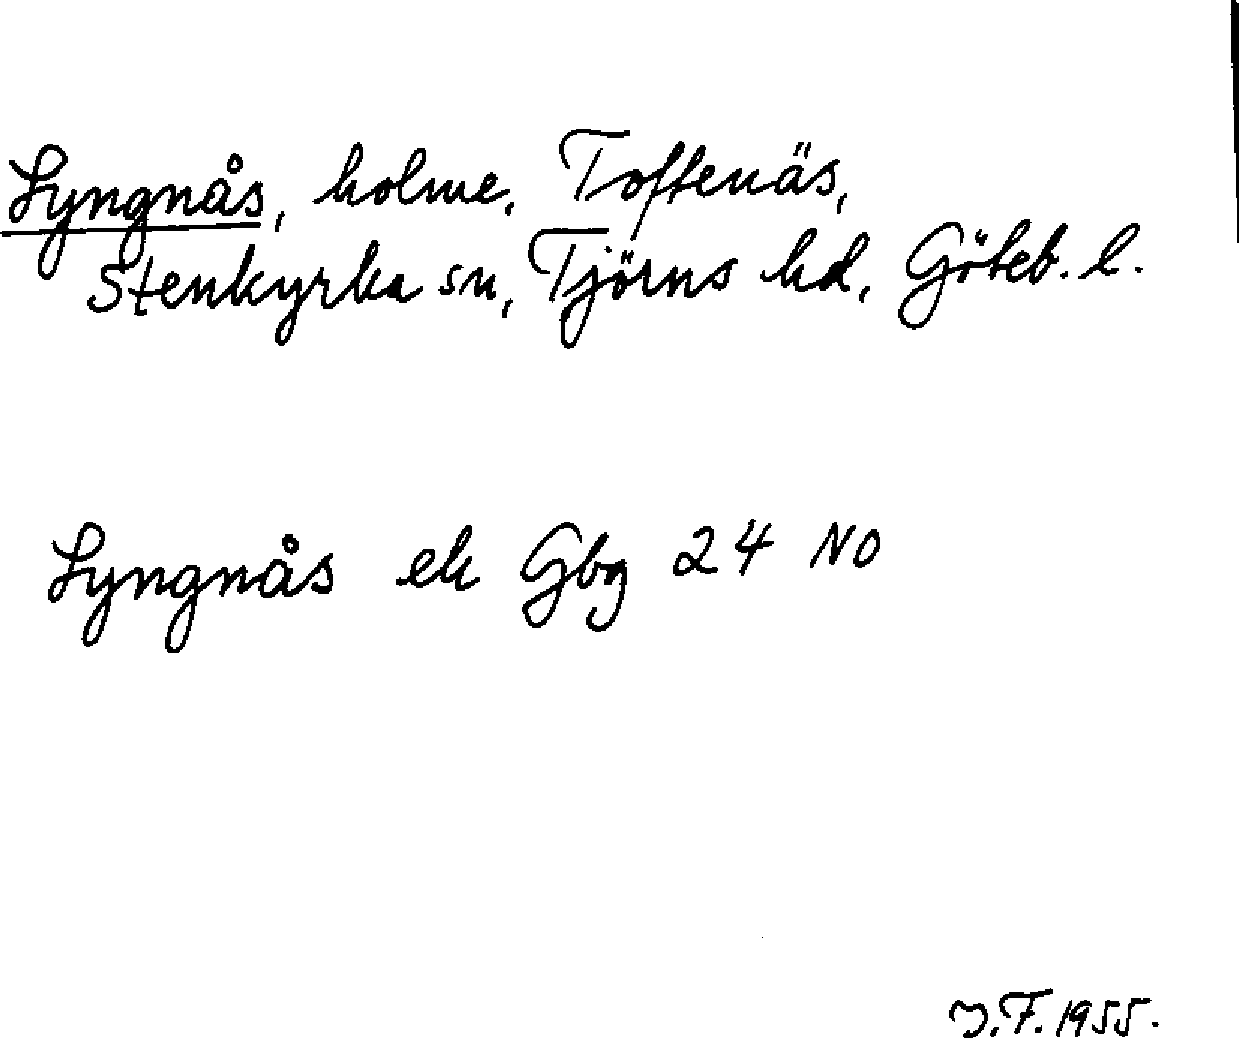 Lyngnås, holme, Toftenäs,
Stenkyrka sn, Tjörns hd, Göteb. l.
Lyngnås ek Gbg 24 NO
J.F. 1955.